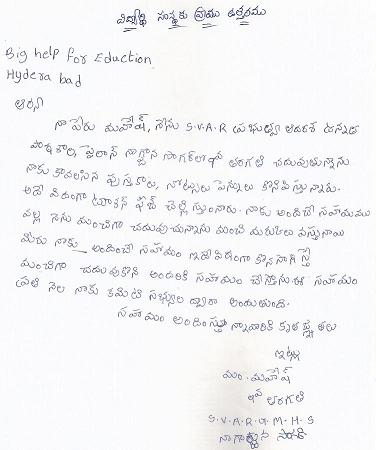 విద్యార్థి సంస్థకు వ్రాయు ఉత్తరము
Big help for Eduction
Hydera bad
ఆర్య
నా పేరు మహేష్, నేను S.V.A.R ప్రభుత్వ ఆదర్శ ఉన్నత
పాఠశాల, పైలాన్ నాగార్జున సాగర్‌లో తరగతి చదువుతున్నాను
నాకు కావలసిన పుస్తకాలు, నోట్సులు పెన్నులు కొనిపిస్తున్నారు.
అదే విధంగా ట్యూషన్ ఫీజ్ చెల్లిస్తున్నారు. నాకు అందించే సహాయము
వల్ల నేను మంచిగా చదువుచున్నాను మంచి మార్కులు వస్తున్నాయి
మీరు నాకు అందించే సహాయం ఇదేవిధంగా కొనసాగిస్తే
మంచిగా చదువుకొని అందరికి సహాయం చేస్తాను. ఈ సహాయం
ప్రతి నెల నాకు కమిటి సభ్యుల ద్వారా అందుతుంది.
సహాయం అందిస్తున్నవారికి కృతజ్ఞతలు
ఇట్లు
మం. మహేష్
తరగతి
S.V.A.R.G.M.H.S
నాగార్జున సాగర్